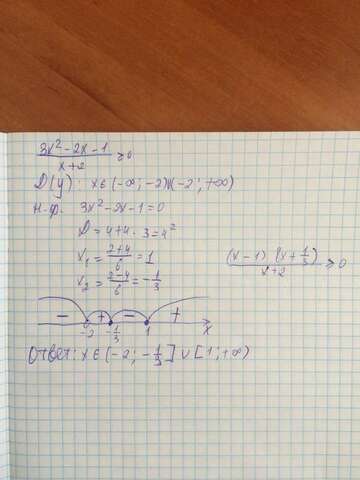 3x²-2x-1 / x+2 ≥ 0
D(y): x∈(-∞; -2)∪(-2; +∞)
н.ф. 3x²-2x-1=0
D=4+4·3=4²
x₁ = 2+4 / 6 = 1
x₂ = 2-4 / 6 = -1/3
(x-1)(x+1/3) / x+2 ≥ 0
- + - +
-2 -1/3 1 x
Ответ: x∈(-2; -1/3]∪[1; +∞)